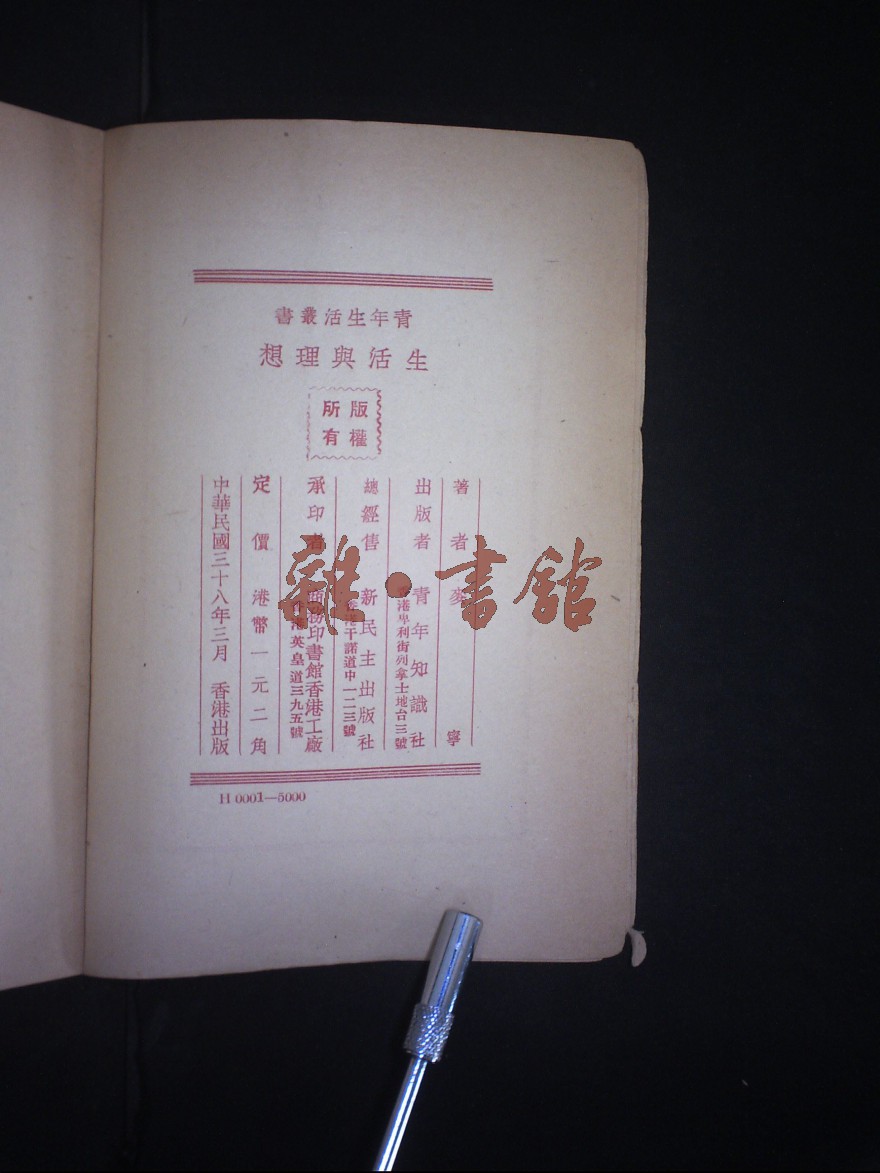 青年生活叢書
生活與理想
版權
所有
著者 麥寧
出版者 青年知識社
香港卑利街列拿士地台三號
總經售 新民主出版社
香港干諾道中一二三號
承印者 商務印書館香港工廠
香港英皇道三九五號
定價 港幣一元二角
中華民國三十八年三月 香港出版
H 0001—5000
雜·書館